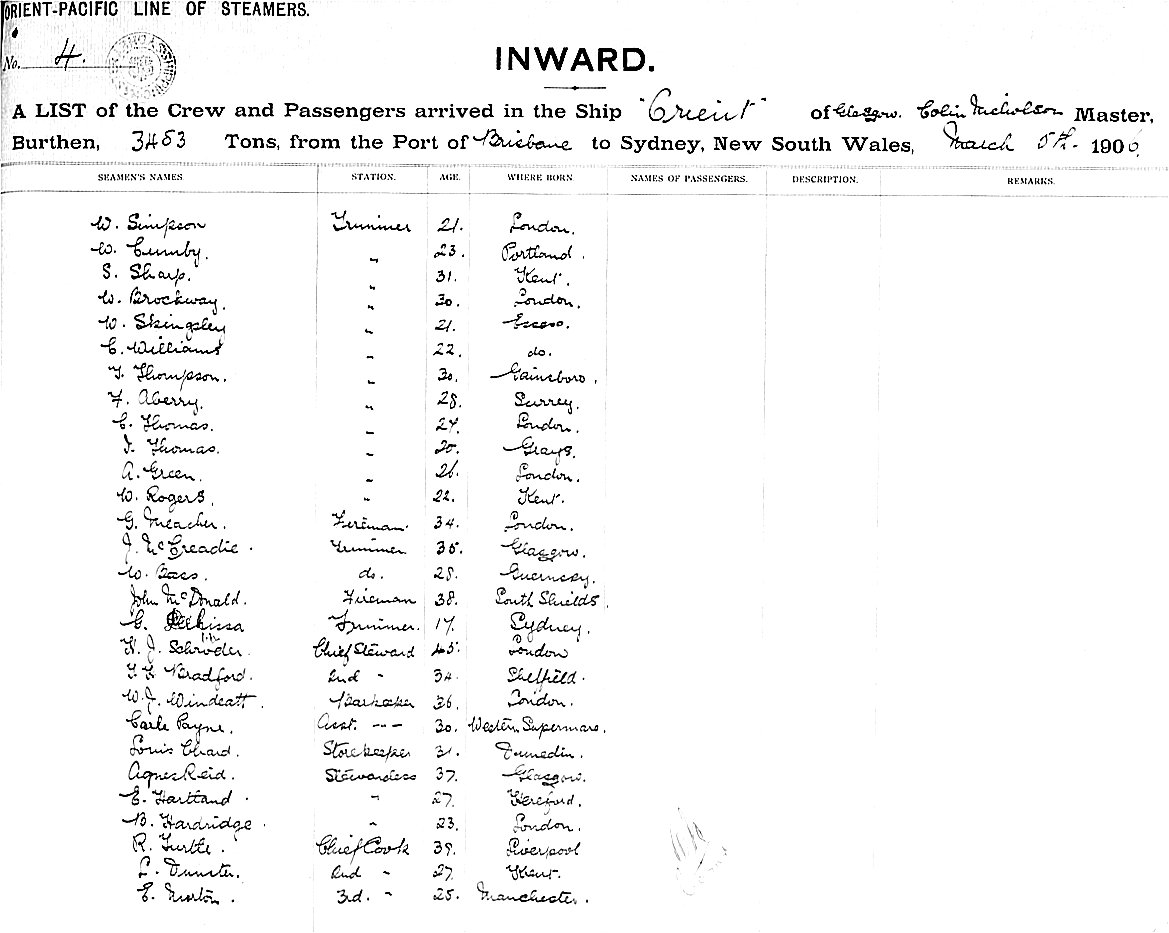 ORIENT-PACIFIC LINE OF STEAMERS.
No. 4.
INWARD.
A LIST of the Crew and Passengers arrived in the Ship "Orient" of Glasgow. Colin Nicholson Master,
Burthen, 3453 Tons, from the Port of Brisbane to Sydney, New South Wales, March 5th. 1906
SEAMEN'S NAMES. STATION. AGE. WHERE BORN NAMES OF PASSENGERS. DESCRIPTION. REMARKS.
W. Simpson Trimmer 21. London.
W. Cumby. " 23. Portland.
S. Sharp. " 31. Kent.
W. Brockway. " 30. London.
W. Skingsley " 21. Essex.
C. Williams " 22. do.
T. Thompson. " 30. Gainsboro.
F. Aberry. " 28. Surrey.
C. Thomas. " 24. London.
J. Thomas. " 20. Grays.
A. Green. " 26. London.
W. Rogers. " 22. Kent.
G. Meacher. Fireman. 34. London.
J. McCreadie. Trimmer 35. Glasgow.
W. do. 28. Guernsey.
John McDonald. Fireman 38. South Shields.
C. Trimmer. 17. Sydney.
H. J. Schröder. Chief Steward 45. London
T. G. Bradford. 2nd " 34. Sheffield.
W. J. Windeatt. Barkeeper 36. London.
Earle Payne. Asst. " 30. Western Supermare.
Louis Chard. Storekeeper 31. Dunedin.
Agnes Reid. Stewardess 37. Glasgow.
E. Hartland. " 27. Hereford.
B. Hardridge. " 23. London.
R. Turtle. Chief Cook 39. Liverpool
L. Dunster. 2nd " 27. Kent.
E. Norton. 3rd. " 25. Manchester.